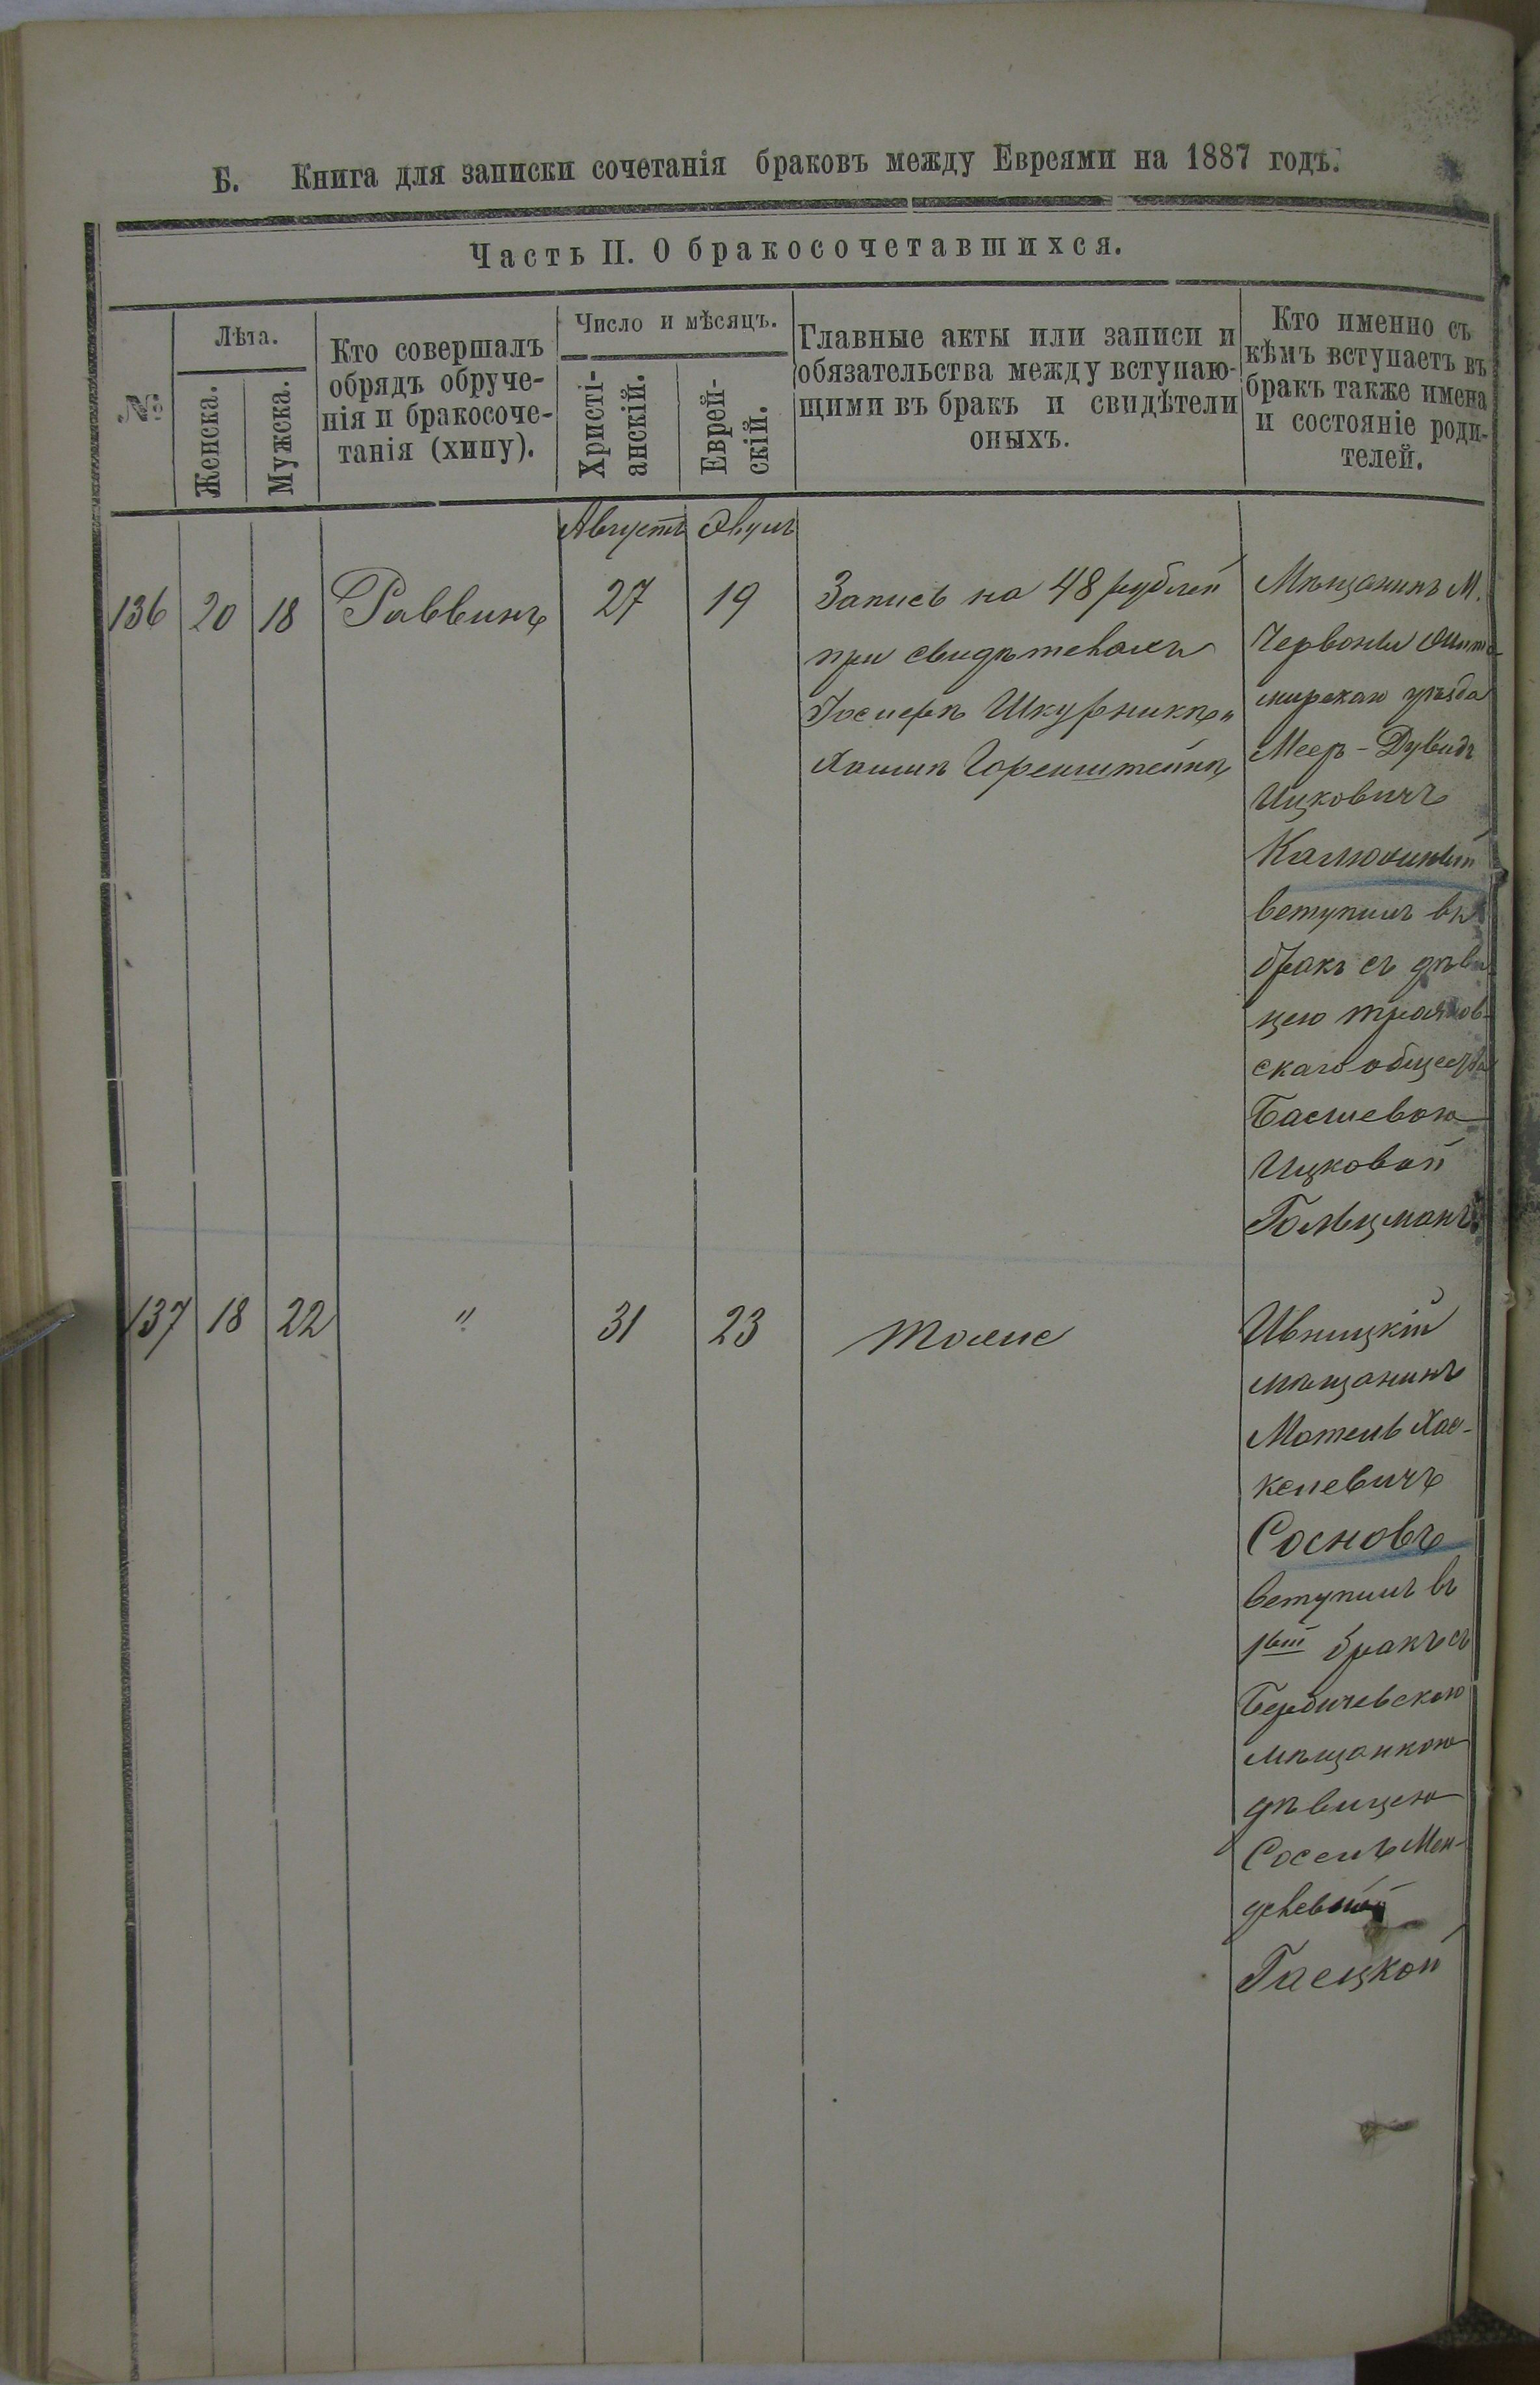 Б. Книга для записки сочетанія браковъ между Евреями на 1887 годъ.
Часть II. О бракосочетавшихся.
№
Лѣта.
Женска.
Мужска.
Кто совершалъ
обрядъ обруче-
нія и бракосоче-
танія (хипу).
Число и мѣсяцъ.
Христі-
анскій.
Еврей-
скій.
Главные акты или записи и
обязательства между вступаю-
щими въ бракъ и свидѣтели
оныхъ.
Кто именно съ
кѣмъ вступаетъ въ
бракъ также имена
и состояніе роди-
телей.
Августъ Элулъ
136 20 18 Раввинъ 27 19
Запись на 48 рублей
при свидѣтеляхъ
Іосифѣ Шкурникѣ и
Хаимѣ Горенштейнѣ
Мѣщанинъ М.
Червоны Жито-
мирскаго уѣзда
Мееръ-Дувидъ
Ицковичъ
вступилъ въ
бракъ съ дѣви
цею трояновъ-
скаго общества
Басшевою
Ицковой
Гольцманъ
137 18 22 " 31 23
тоже
Ивницкій
мѣщанинъ
Мотель Хас-
келевичъ
Сосновъ
вступилъ въ
1вый бракъ съ
Бердичевскою
мѣщанкою
дѣвицею
Соселъ Мен-
делевной